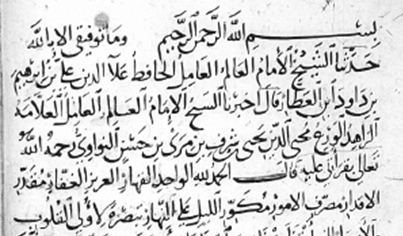 بسم الله الرحمن الرحيم وما توفيقي الا بالله
حدثنا الشيخ الامام العالم العامل الحافظ علا الدين علي بن ابرهيم
بن داود ابن العطار قال اخبرنا الشيخ الامام العالم العامل العلامة
الزاهد الورع محيي الدين يحيى بن شرف بن مري بن حسن النواوي رحمه الله
تعالى بقراتي عليه قال الحمد لله الواحد القهار العزيز الغفار مقدر
الاقدار مصرف الامور مكور الليل على النهار تبصرة لأولي القلوب